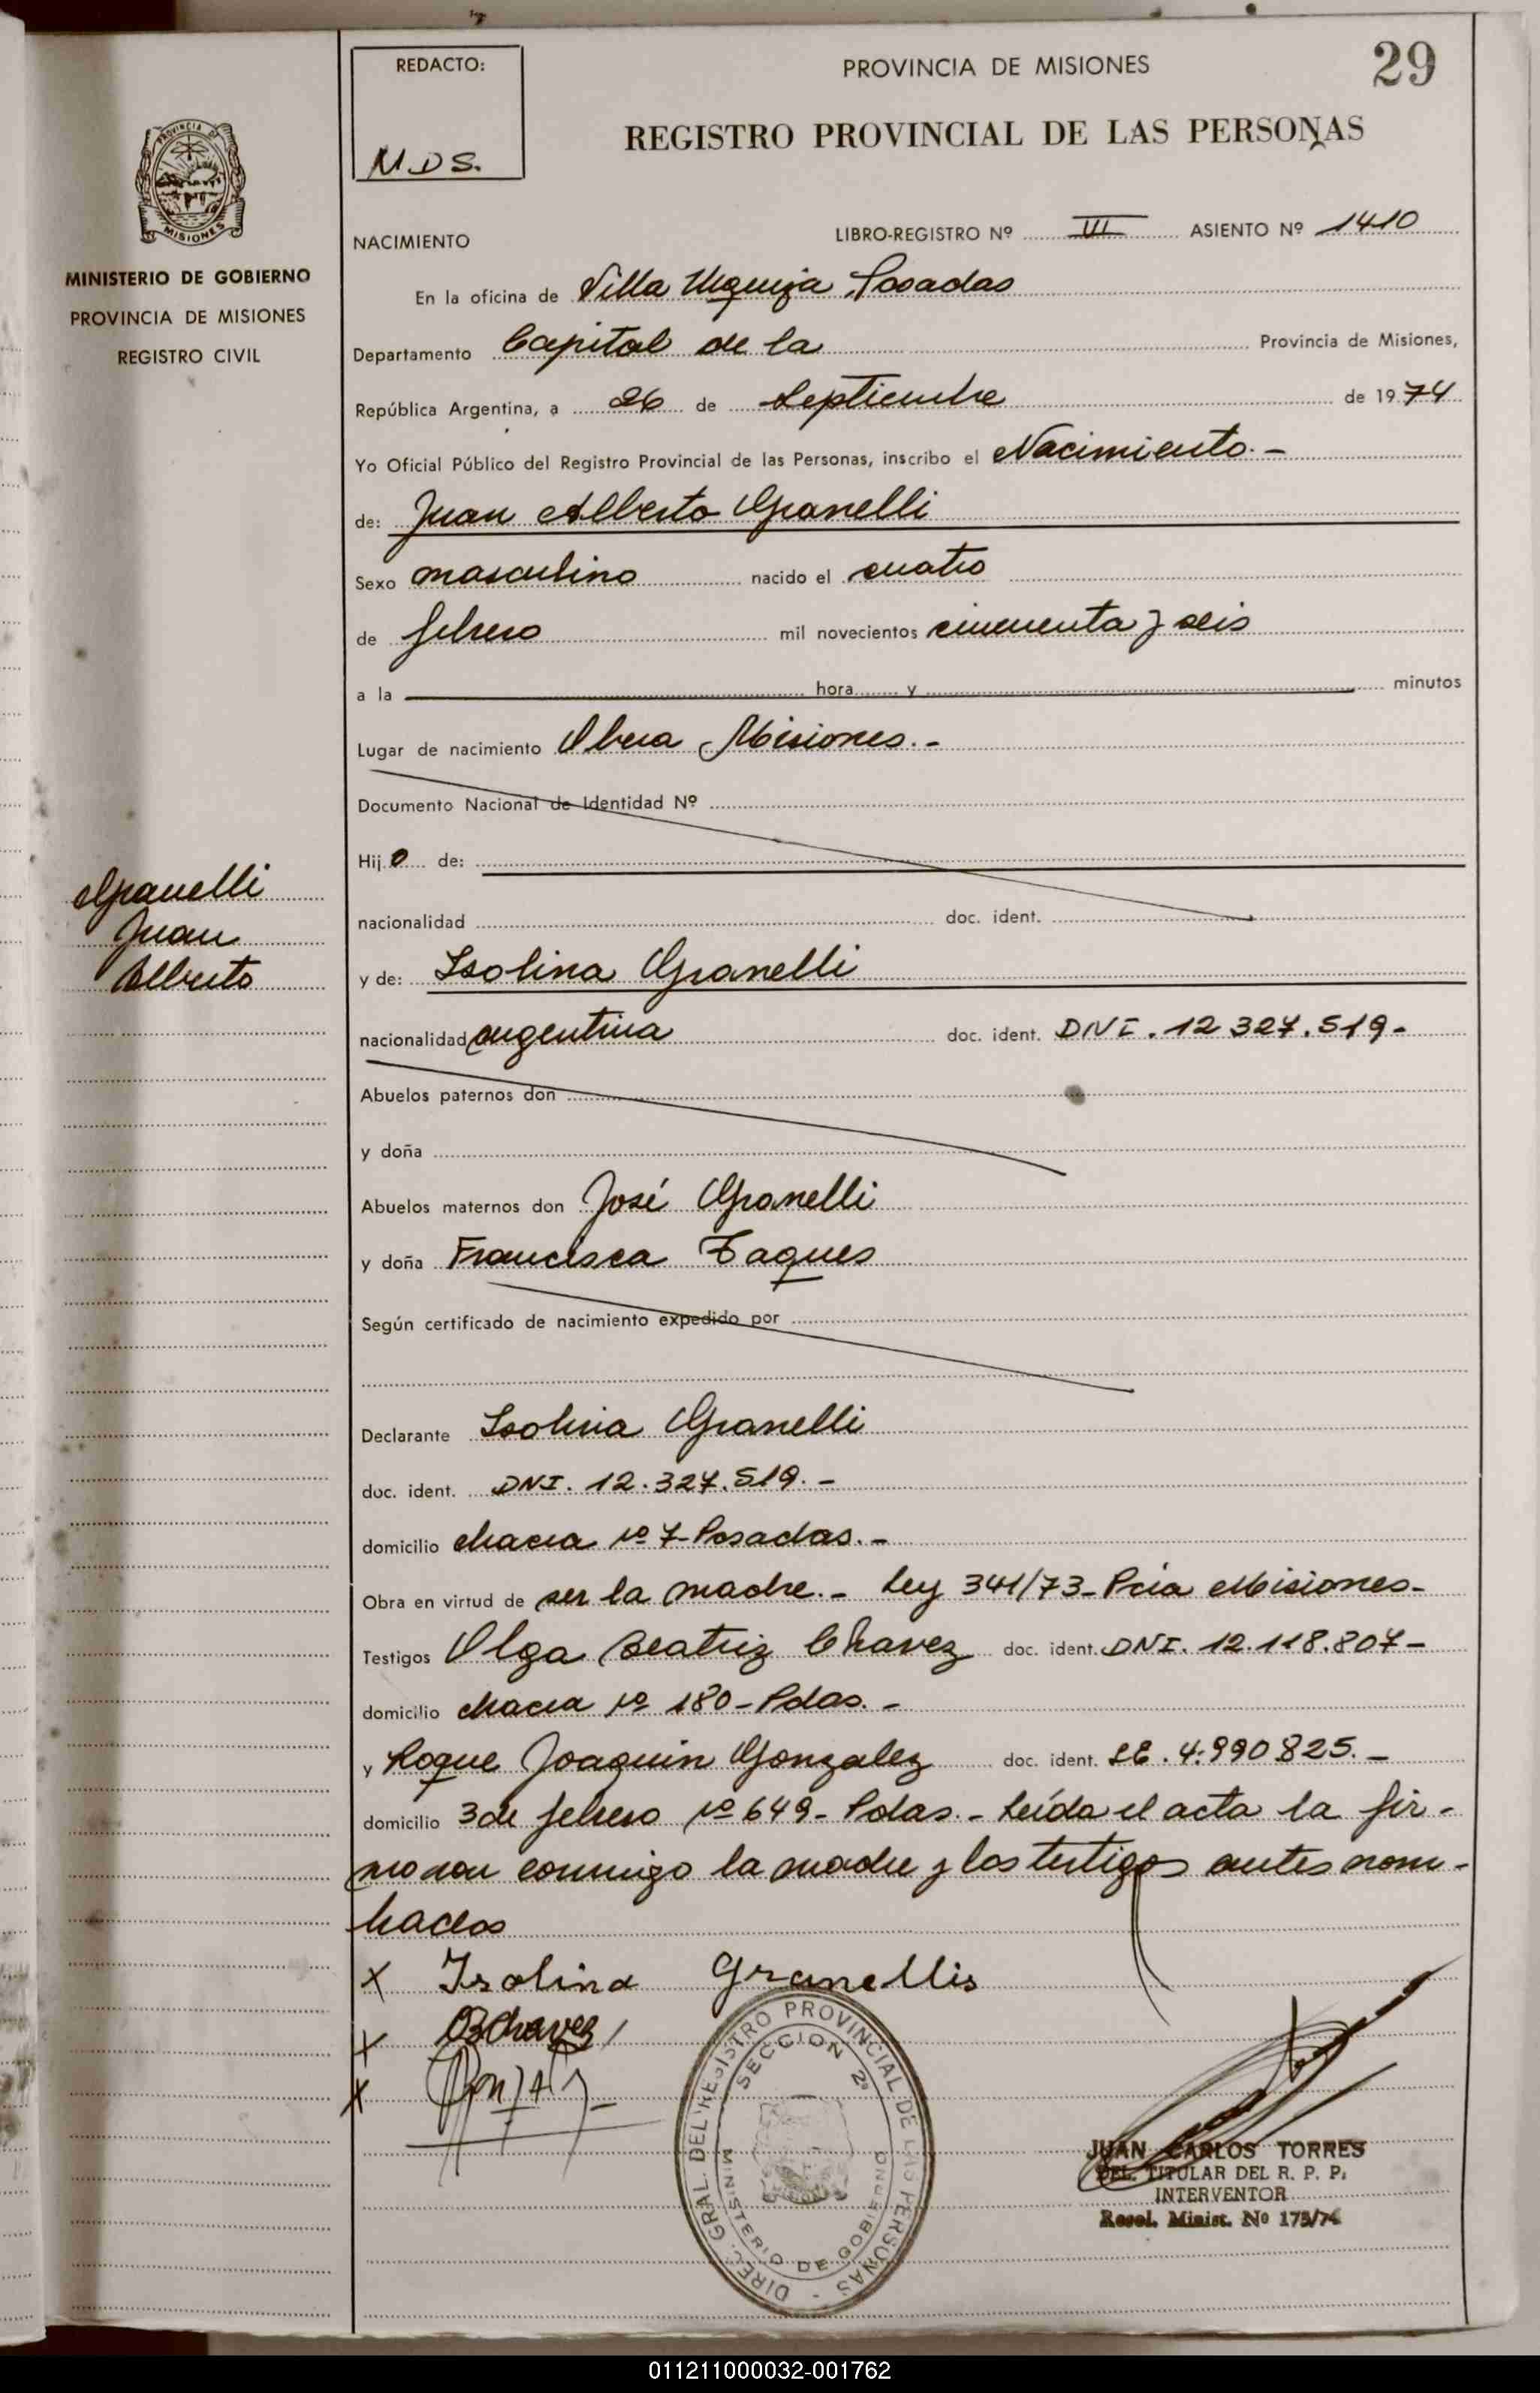 29
REDACTO:
M.D.S.
PROVINCIA DE MISIONES
REGISTRO PROVINCIAL DE LAS PERSONAS
PROVINCIA DE
MISIONES
MINISTERIO DE GOBIERNO
PROVINCIA DE MISIONES
REGISTRO CIVIL
NACIMIENTO
LIBRO-REGISTRO Nº III ASIENTO Nº 1410
En la oficina de Villa Urquiza Posadas
Departamento Capital de la Provincia de Misiones,
República Argentina, a 26 de Septiembre de 1974
Yo Oficial Público del Registro Provincial de las Personas, inscribo el Nacimiento.-
de: Juan Alberto Granelli
Sexo masculino nacido el cuatro
de febrero mil novecientos cincuenta y seis
a la hora y minutos
Lugar de nacimiento Obera Misiones.-
Documento Nacional de Identidad Nº
Hijo de:
nacionalidad doc. ident.
Granelli
Juan
Alberto
y de: Isolina Granelli
nacionalidad argentina doc. ident. DNI. 12 327.519-
Abuelos paternos don
y doña
Abuelos maternos don José Granelli
y doña Francisca Taques
Según certificado de nacimiento expedido por
Declarante Isolina Granelli
doc. ident. DNI. 12.327.519.-
domicilio chacra nº 7-Posadas.-
Obra en virtud de ser la madre.- Ley 341/73-Pcia Misiones-
Testigos Olga Beatriz Chavez doc. ident. DNI. 12.118.807-
domicilio chacra nº 180-Pdas.-
y Roque Joaquin Gonzalez doc. ident. LE. 4.990825.-
domicilio 3 de febrero nº 649-Pdas.- Leída el acta la fir-
maron conmigo la madre y los testigos antes nom-
brados
x Isolina Granellis
x OBChavez
x
DIREC. GRAL. DEL REGISTRO PROVINCIAL DE LAS PERSONAS -
SECCION 2ª
MINISTERIO DE GOBIERNO
JUAN CARLOS TORRES
DEL. TITULAR DEL R. P. P.
INTERVENTOR
Resol. Minist. No 175/74
011211000032-001762